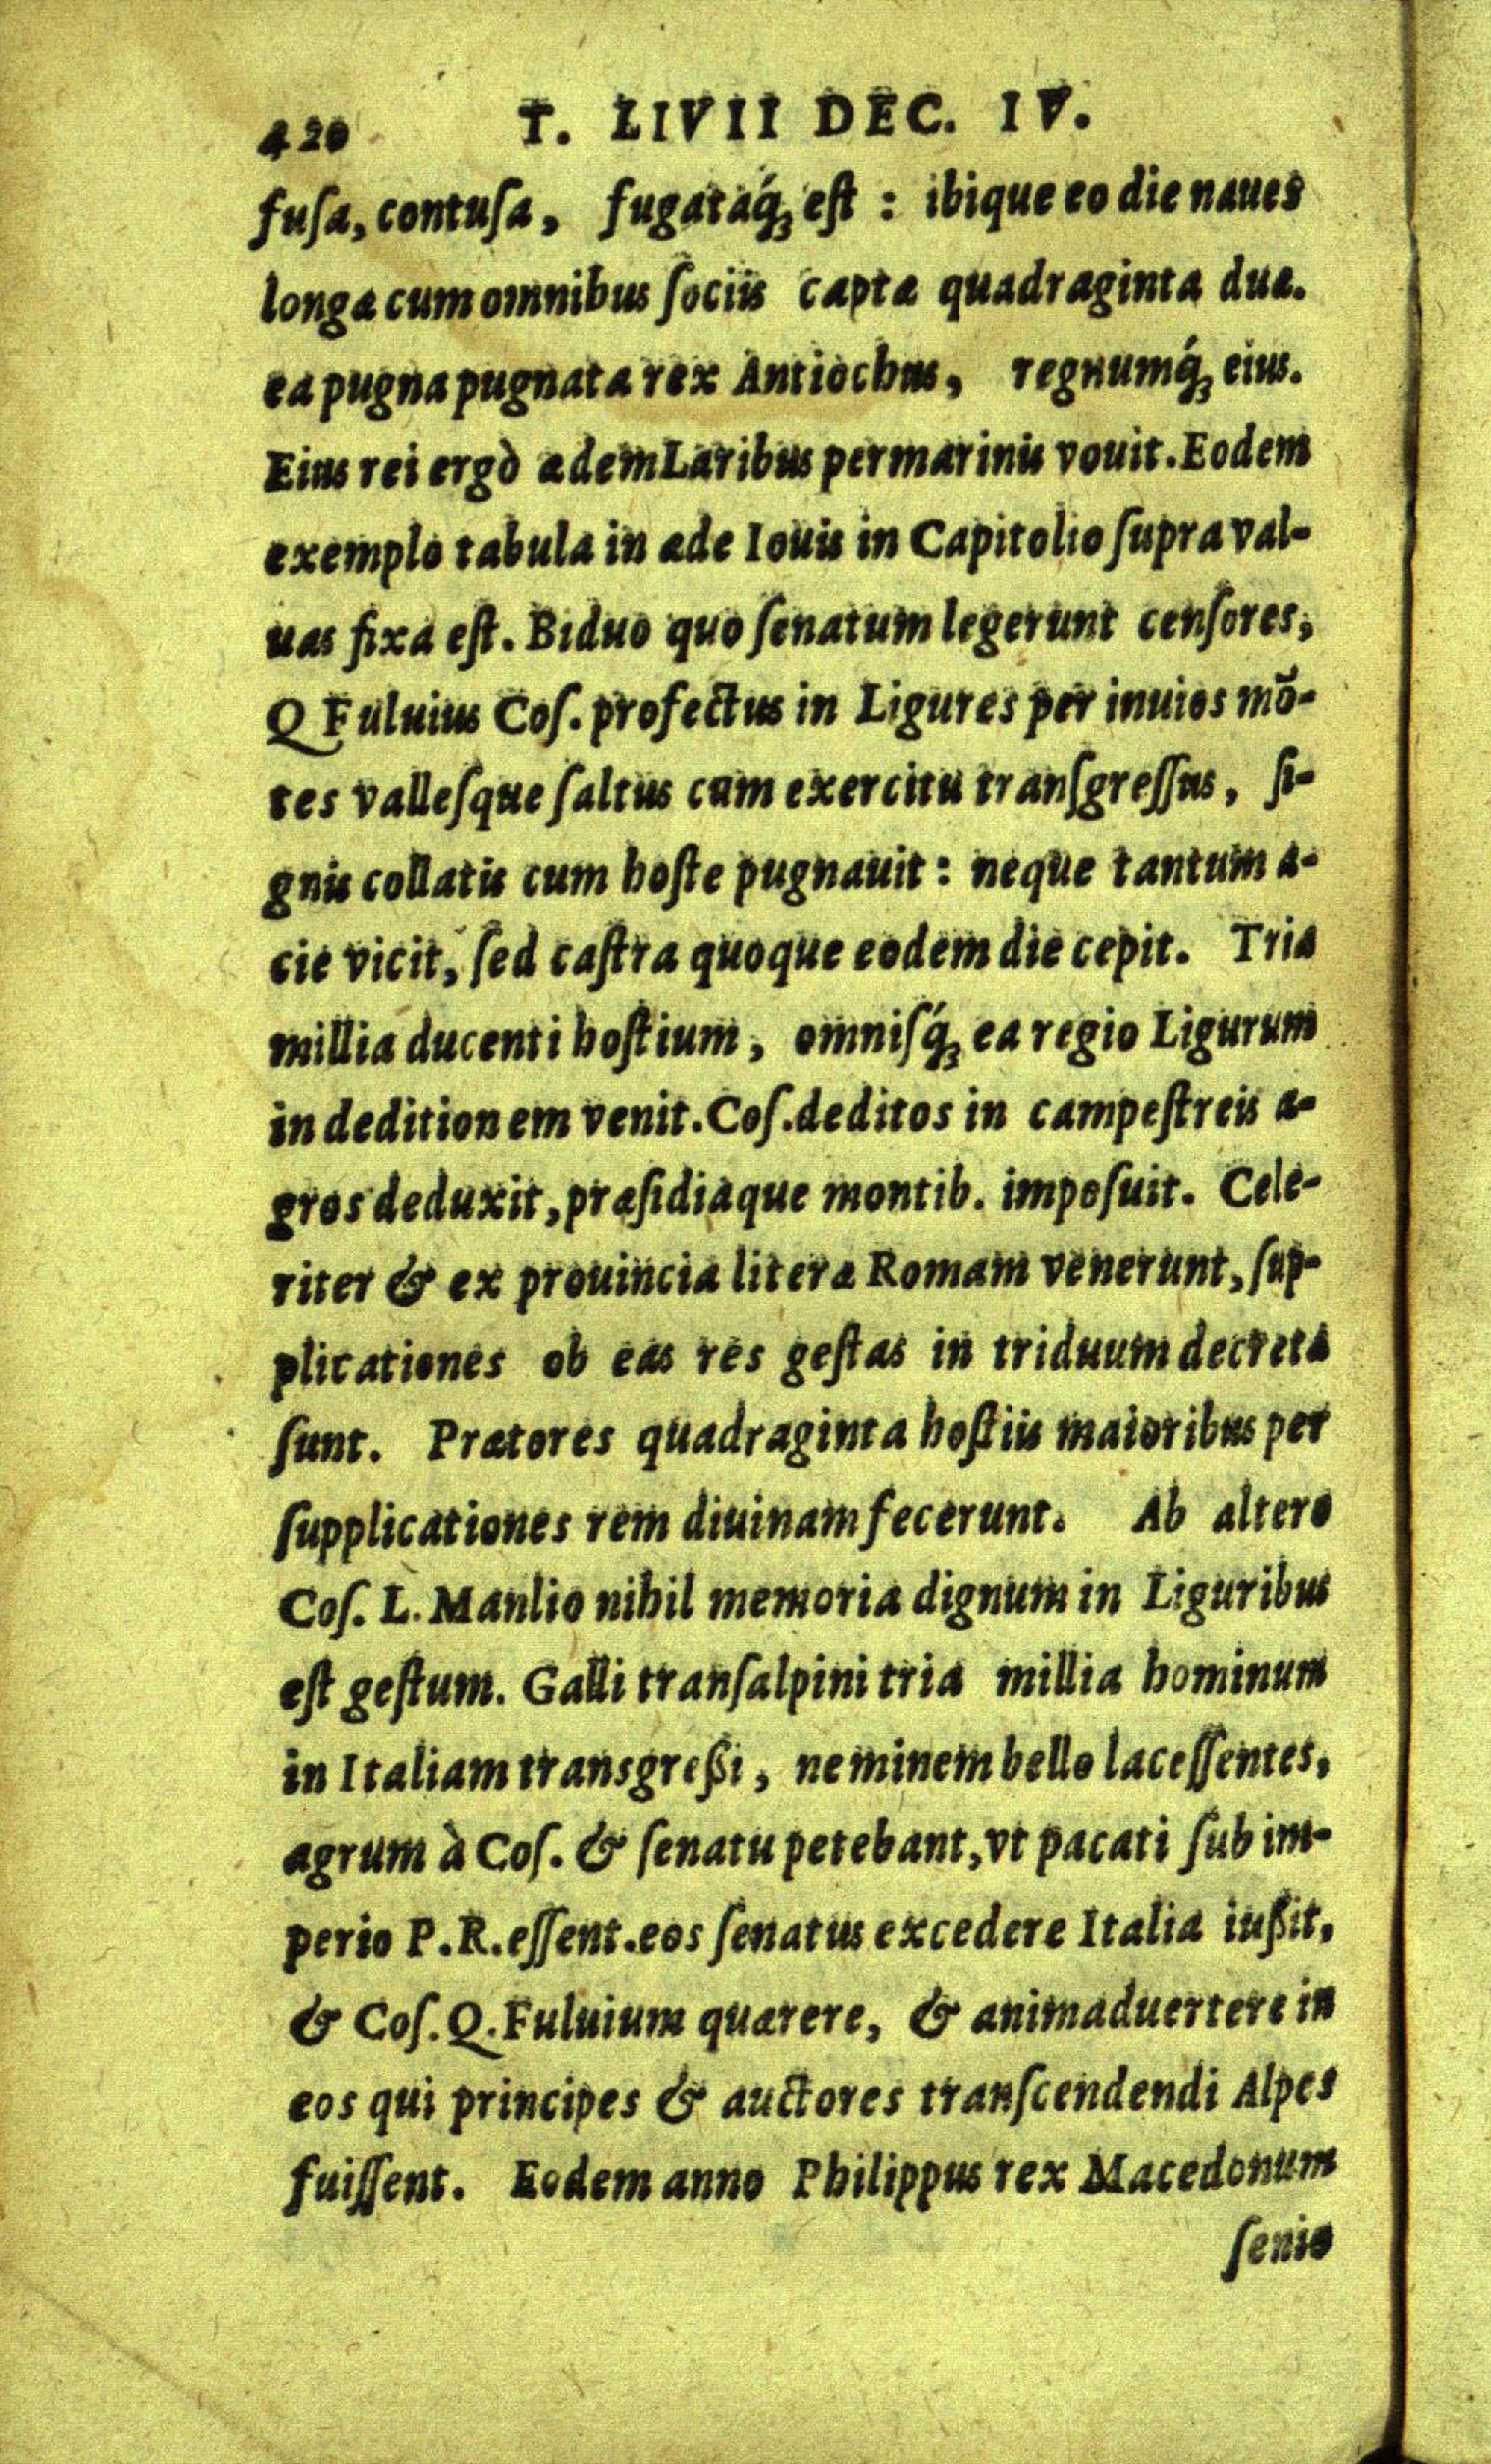 420 T. LIVII DEC. IV.
fuſa, contuſa, fugataq́ꝫ eſt : ibique eo die naues
longæ cum omnibus ſociis captæ quadraginta duæ.
ea pugna pugnata rex Antiochus, regnumq́ꝫ eius.
Eius rei ergò ædem Laribus permarinis vouit. Eodem
exemplo tabula in æde Iouis in Capitolio ſupra val-
uas fixa eſt. Biduo quo ſenatum legerunt cenſores,
Q Fuluius Coſ. profectus in Ligures per inuios mō-
tes valleſque ſaltus cum exercitu tranſgreſſus, ſi-
gnis collatis cum hoſte pugnauit : neque tantum a-
cie vicit, ſed caſtra quoque eodem die cepit. Tria
millia ducenti hoſtium, omniſq́ꝫ ea regio Ligurum
in deditionem venit. Coſ. deditos in campeſtreis a-
gros deduxit, præſidiaque montib. impoſuit. Cele-
riter & ex prouincia literæ Romam venerunt, ſup-
plicationes ob eas res geſtas in triduum decretæ
ſunt. Prætores quadraginta hoſtiis maioribus per
ſupplicationes rem diuinam fecerunt. Ab altero
Coſ. L. Manlio nihil memoria dignum in Liguribus
eſt geſtum. Galli tranſalpini tria millia hominum
in Italiam transgreßi, neminem bello laceſſentes,
agrum à Coſ. & ſenatu petebant, vt pacati ſub im-
perio P. R. eſſent. eos ſenatus excedere Italia iußit,
& Coſ. Q. Fuluium quærere, & animaduertere in
eos qui principes & auctores tranſcendendi Alpes
fuiſſent. Eodem anno Philippus rex Macedonum
ſenio